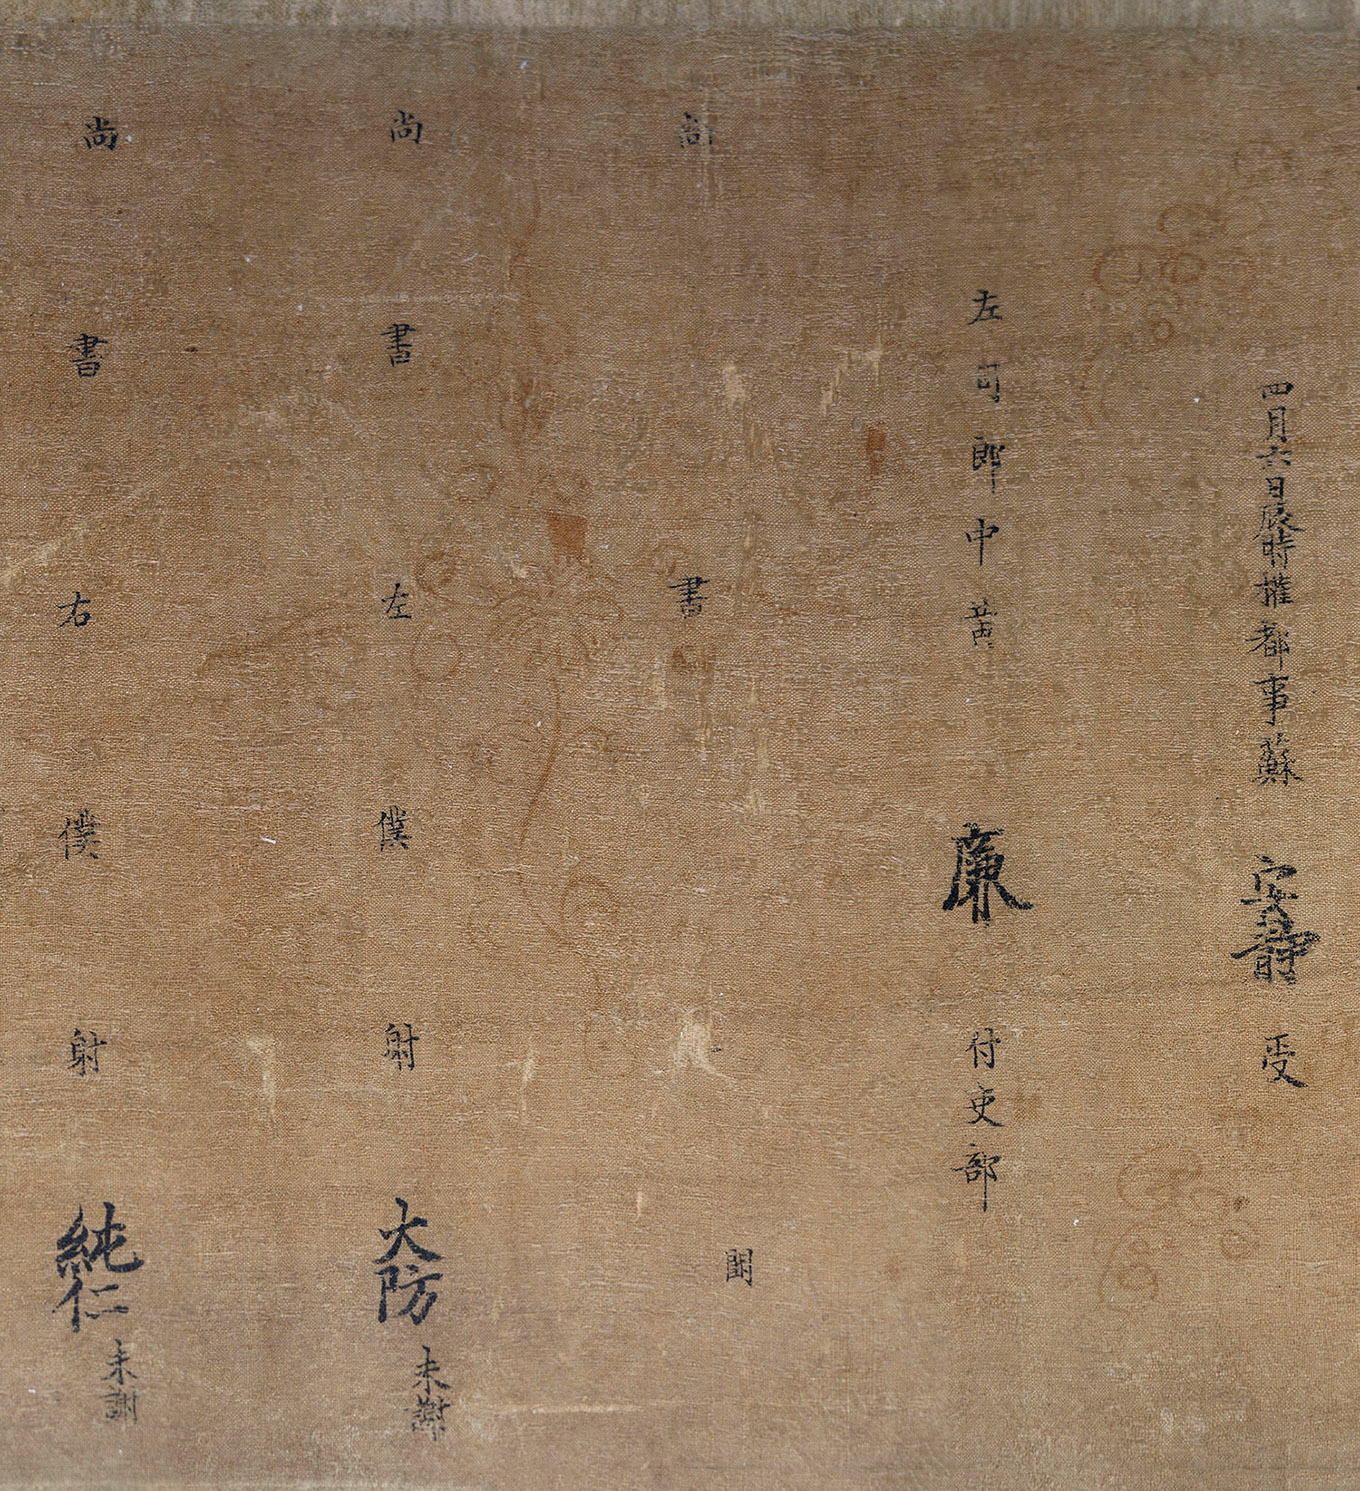 四月六日辰時權都事蘇安靜受
左司郎中黃廉付吏部
尚書闕
尚書左僕射大防未謝
尚書右僕射純仁未謝